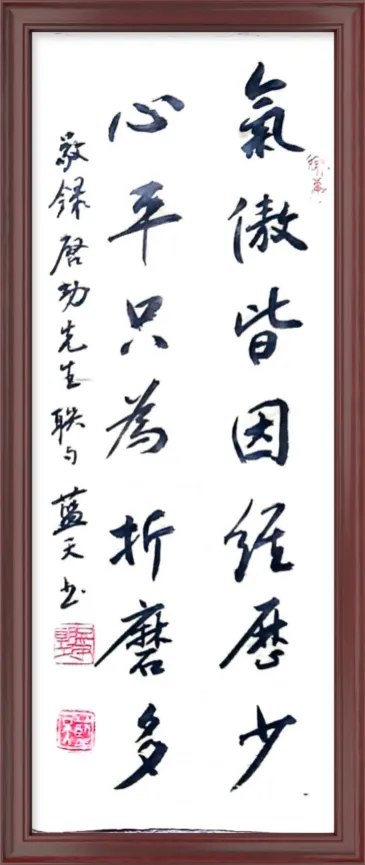 氣傲皆因經歷少
心平只為折磨多
敬錄啓功先生联句 蓝天书